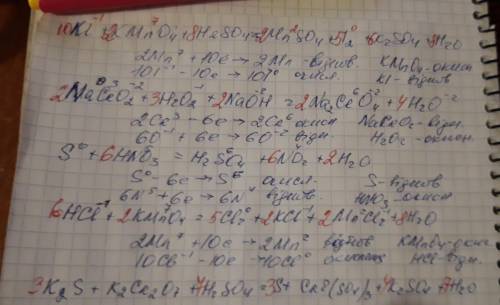 10KI⁻¹+2KMn⁷O₄+8H₂SO₄=2Mn²SO₄+5I₂⁰+6K₂SO₄+8H₂O
2Mn⁷+10e→2Mn - віднов. KMnO₄-окисн
10I⁻¹-10e→10I⁰ окисл. KI-віднов
2NaCrO₂+3H₂O₂⁻¹+2NaOH=2Na₂Cr⁶O₄+4H₂O⁻²
2Cr³-6e→2Cr⁶ окисн NaCrO₂-відн.
6O⁻¹+6e→6O⁻² відн. H₂O₂-окисн.
S⁰+6HNO₃=H₂SO₄+6NO₂+2H₂O
S⁰-6e→S⁶ окисл. S-віднов
6N⁵+6e→6N⁴ віднов. HNO₃-окисн
6HCl⁻¹+2KMnO₄=5Cl₂⁰+2KCl⁻¹+2Mn²Cl₂+8H₂O
2Mn⁷+10e→2Mn² віднов KMnO₄-окисн.
10Cl⁻¹-10e→10Cl⁰ HCl-відн.
3K₂S+K₂Cr₂O₇+7H₂SO₄=3S+Cr₂(SO₄)₃+4K₂SO₄+7H₂O